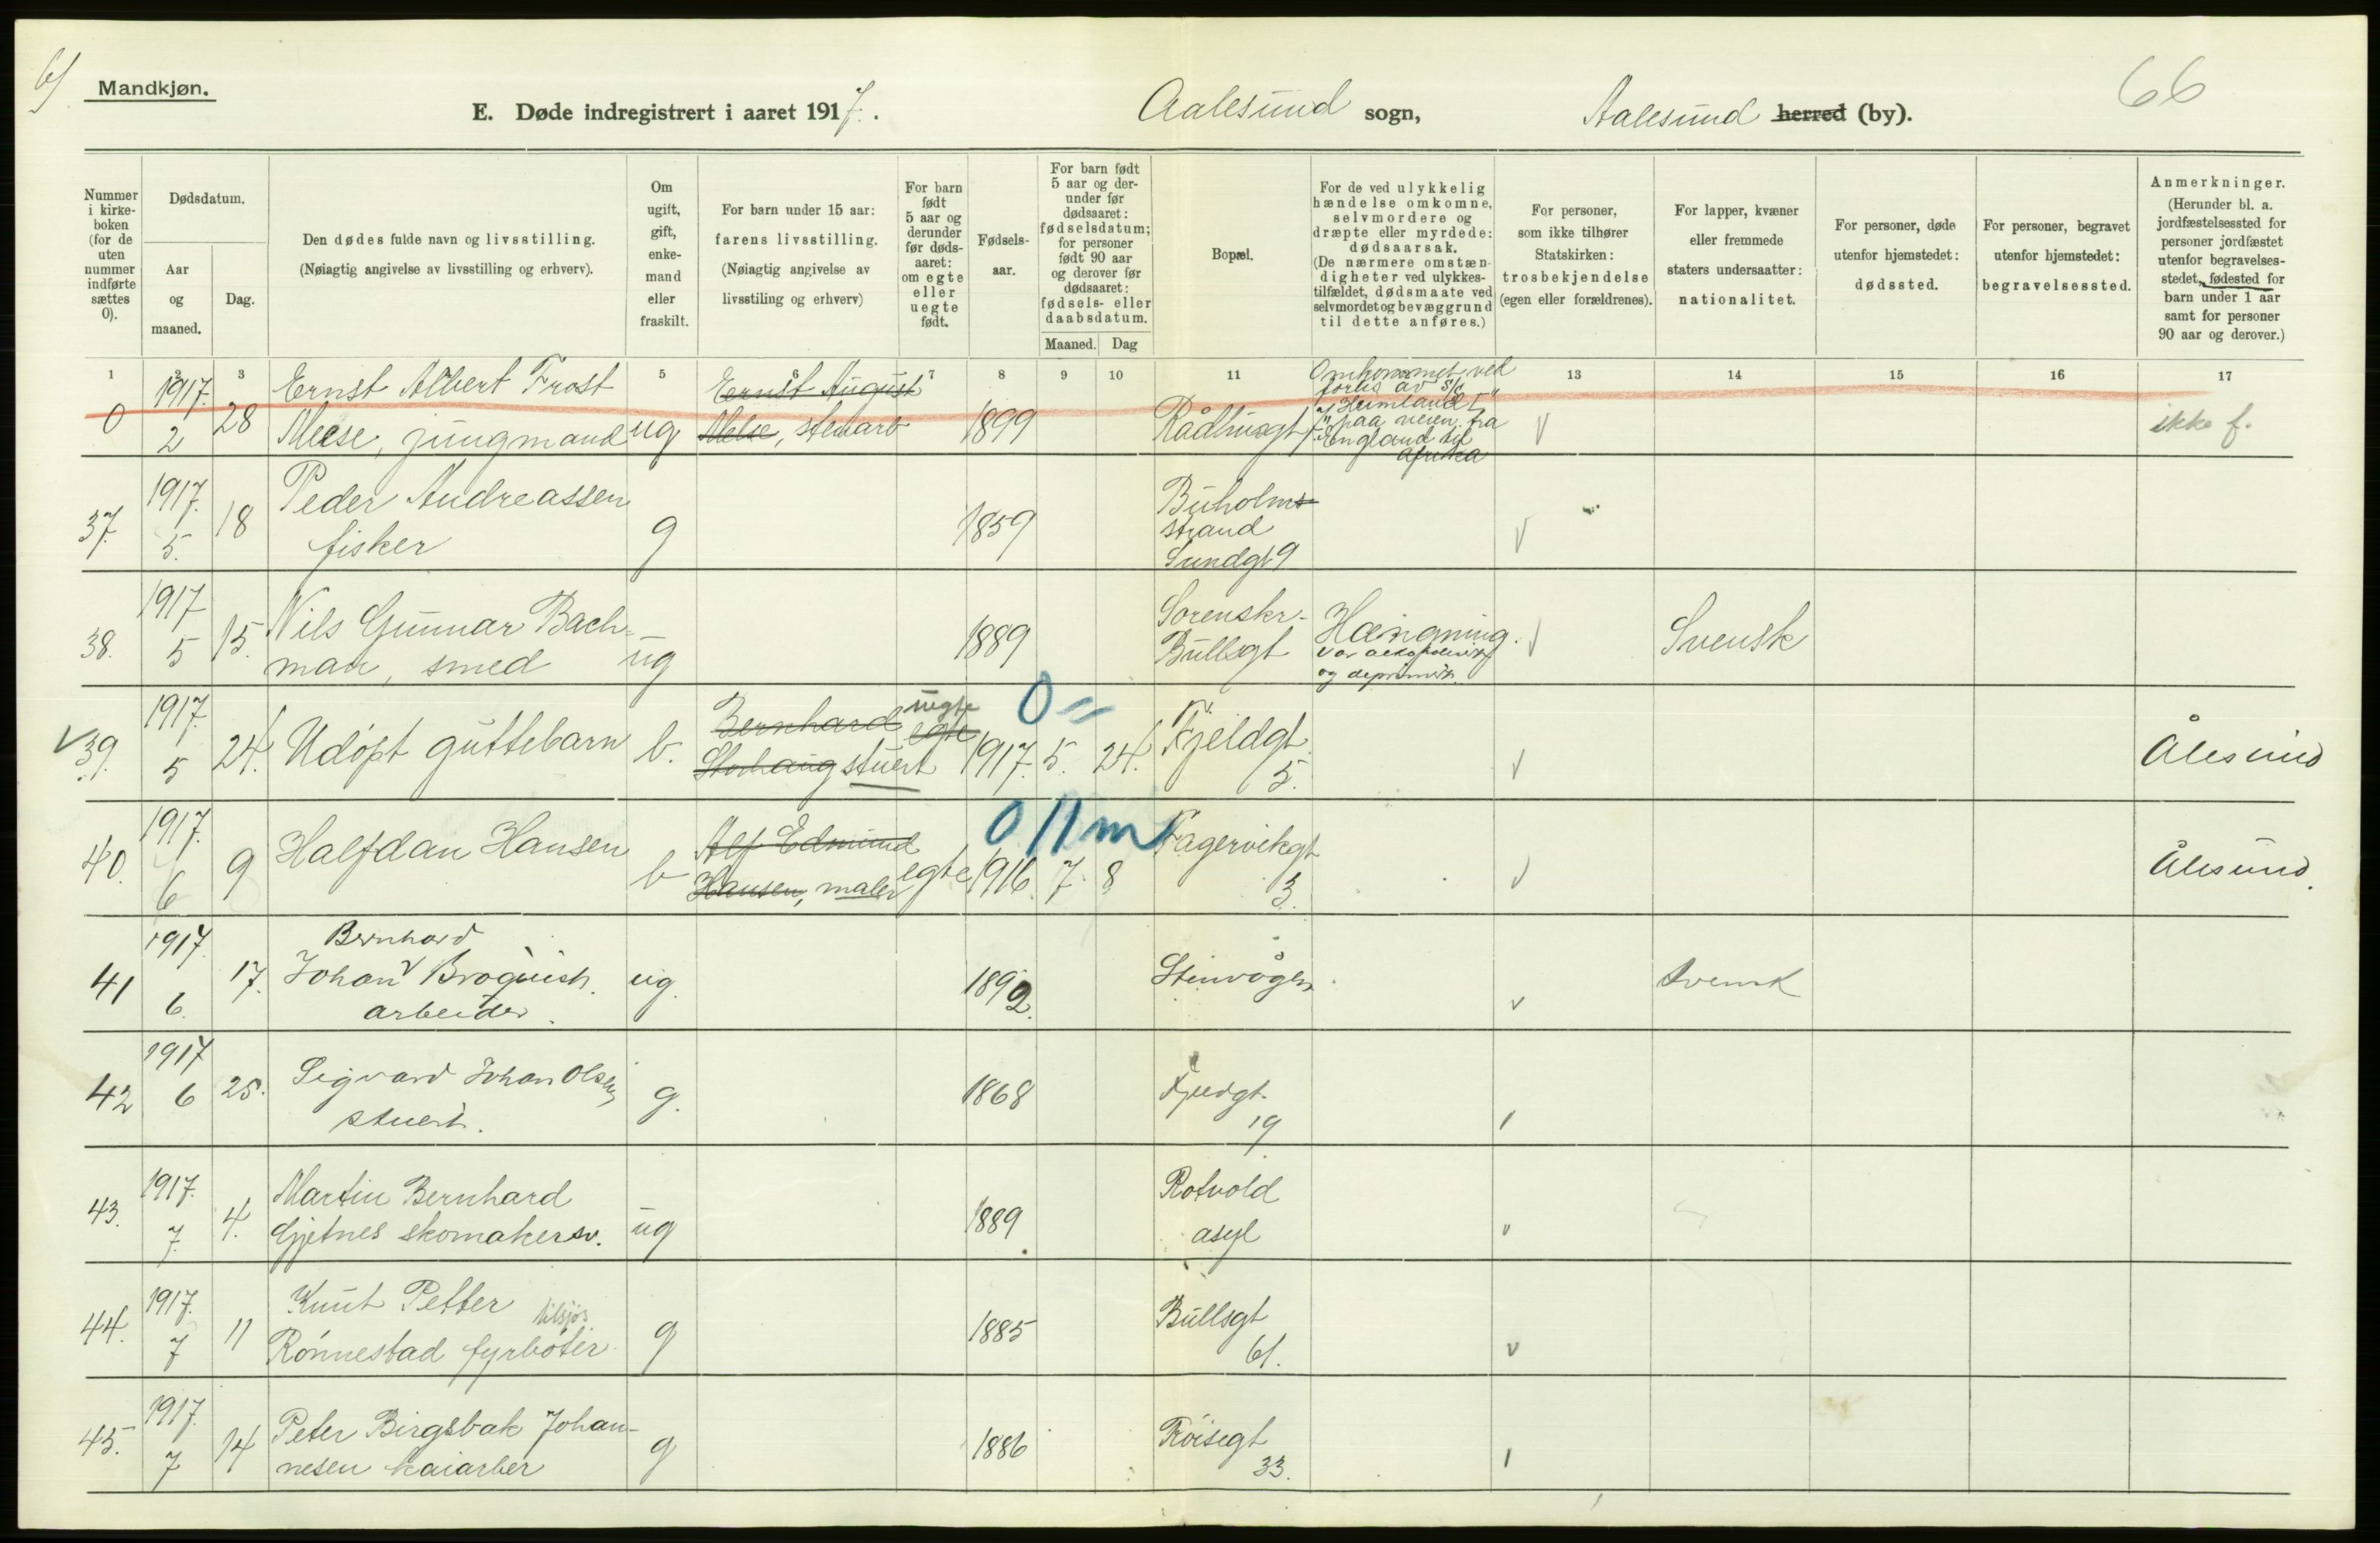 6)
Mandkjøn.
66
E. Døde indregistrert i aaret 1917. Aalesund sogn, Aalesund herred (by).
Nummer i kirke-boken (for de uten nummer indførte sættes 0).
Dødsdatum.
Aar og maaned.
Dag.
Den dødes fulde navn og livsstilling.
(Nøiagtig angivelse av livsstilling og erhverv).
Om ugift, gift, enke-mand eller fraskilt.
For barn under 15 aar:
farens livsstilling.
(Nøiagtig angivelse av
livsstiling og erhverv)
For barn født 5 aar og derunder før døds-aaret: om egte eller uegte født.
Fødsels-aar.
For barn født 5 aar og der-under før dødsaaret: fødselsdatum; for personer født 90 aar og derover før dødsaaret: fødsels- eller daabsdatum.
Maaned. Dag
Bopæl.
For de ved ulykkelig hændelse omkomne, selvmordere og dræpte eller myrdede: dødsaarsak. (De nærmere omstæn-digheter ved ulykkes-tilfældet, dødsmaate ved selvmordet og bevæggrund til dette anføres.)
For personer, som ikke tilhører Statskirken: trosbekjendelse (egen eller forældrenes).
For lapper, kvæner eller fremmede staters undersaatter: nationalitet.
For personer, døde utenfor hjemstedet: dødssted.
For personer, begravet utenfor hjemstedet: begravelsessted.
Anmerkninger. (Herunder bl. a. jordfæstelsessted for personer jordfæstet utenfor begravelses-stedet, fødested for barn under 1 aar samt for personer 90 aar og derover.)
1 2 3 5 6 7 8 9 10 11 13 14 15 16 17
0 1917. 2 28 Ernst Albert Frost
Melse, jungmand ug Ernst August
Melse, stenarb 1899 Rådhusgt Omkommet ved
forlis av s/s
"Heimland I"
paa veien fra
England til
Afrika
ikke f.
37. 1917. 5. 18 Peder Andreassen
fisker g 1859 Buholms
strand
Sundgt 9
38. 1917 5 15. Nils Gunnar Bach-
man, smed ug 1889 Sorenskr.
Bullsgt Hængning.
Var
og Svensk
39. 1917. 5 24. Udøpt guttebarn b. Bernhard
Storhaug stuert uegte
egte 1917. 5. 24. 0 = Fjeldgt
5. Ålesund
40. 1917. 6 9 Halfdan Hansen b Alf Edmund
Hansen, maler egte 1916. 7. 8 0 11 m Fagervikgt
3. Ålesund.
41 1917. 6. 17. Bernhard
Johan
arbeider. ug. 1892. Stenvågen Svensk
42 1917 6 25. Sigvard Johan Olsen
stuert. g. 1868 Fjeldgt.
19
43. 1917. 7. 4. Martin Bernhard
Gjetnes skomakersv. ug 1889 Rotvold
asyl
44. 1917. 7 11 Knut Petter
Rønnestad fyrbøter tilsjøs. g 1885 Bullsgt
61.
45. 1917. 7 14 Peter Birgsbak Johan-
nesen kaiarber g 1886 Røisegt
33.